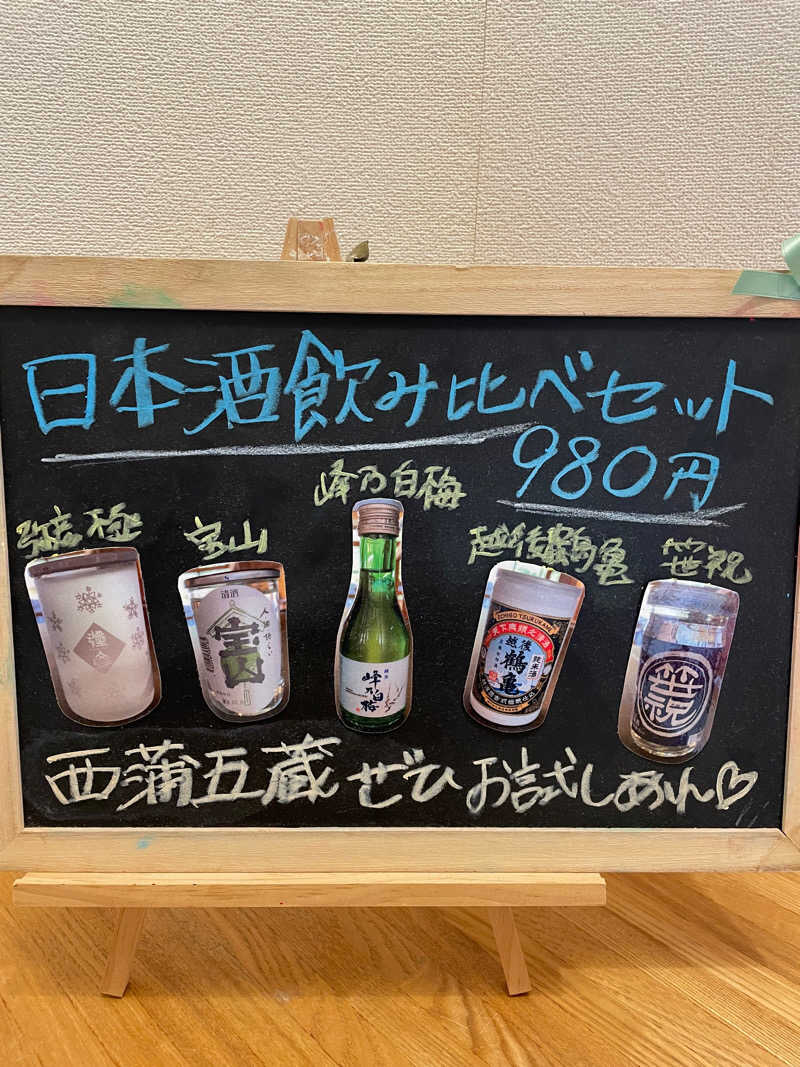 日本酒飲み比べセット
980円
峰乃白梅
弥彦極
宝山
越後鶴亀
笹祝
清酒
宝山
峰乃白梅
ECHIGO TSURUKAME
越後
鶴亀
純米酒
笹祝
西蒲五蔵ぜひお試しあれ♡